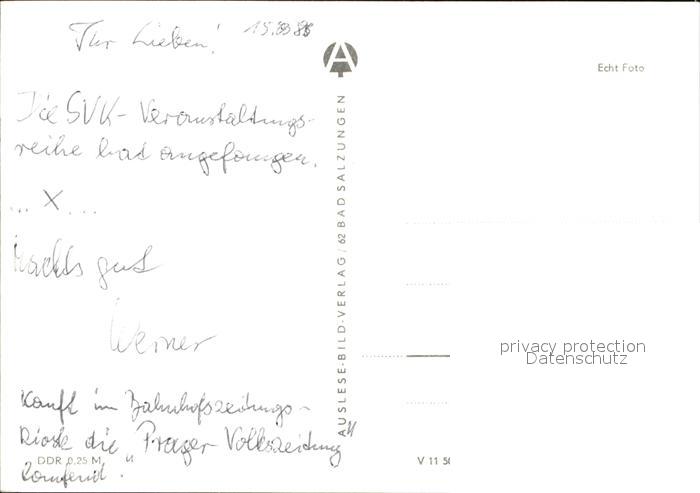 Ihr Lieben!
Die SVK-Veranstaltungs-
reihe hat angefangen.
... X ...
Machts gut
Werner
Kauft im Bahnhofszeitungs-
kiosk die "Prager Volkszeitung"
laufend.
DDR 0,25 M
AUSLESE-BILD-VERLAG / 62 BAD SALZUNGEN
A
Echt Foto
privacy protection
Datenschutz
V 11 50